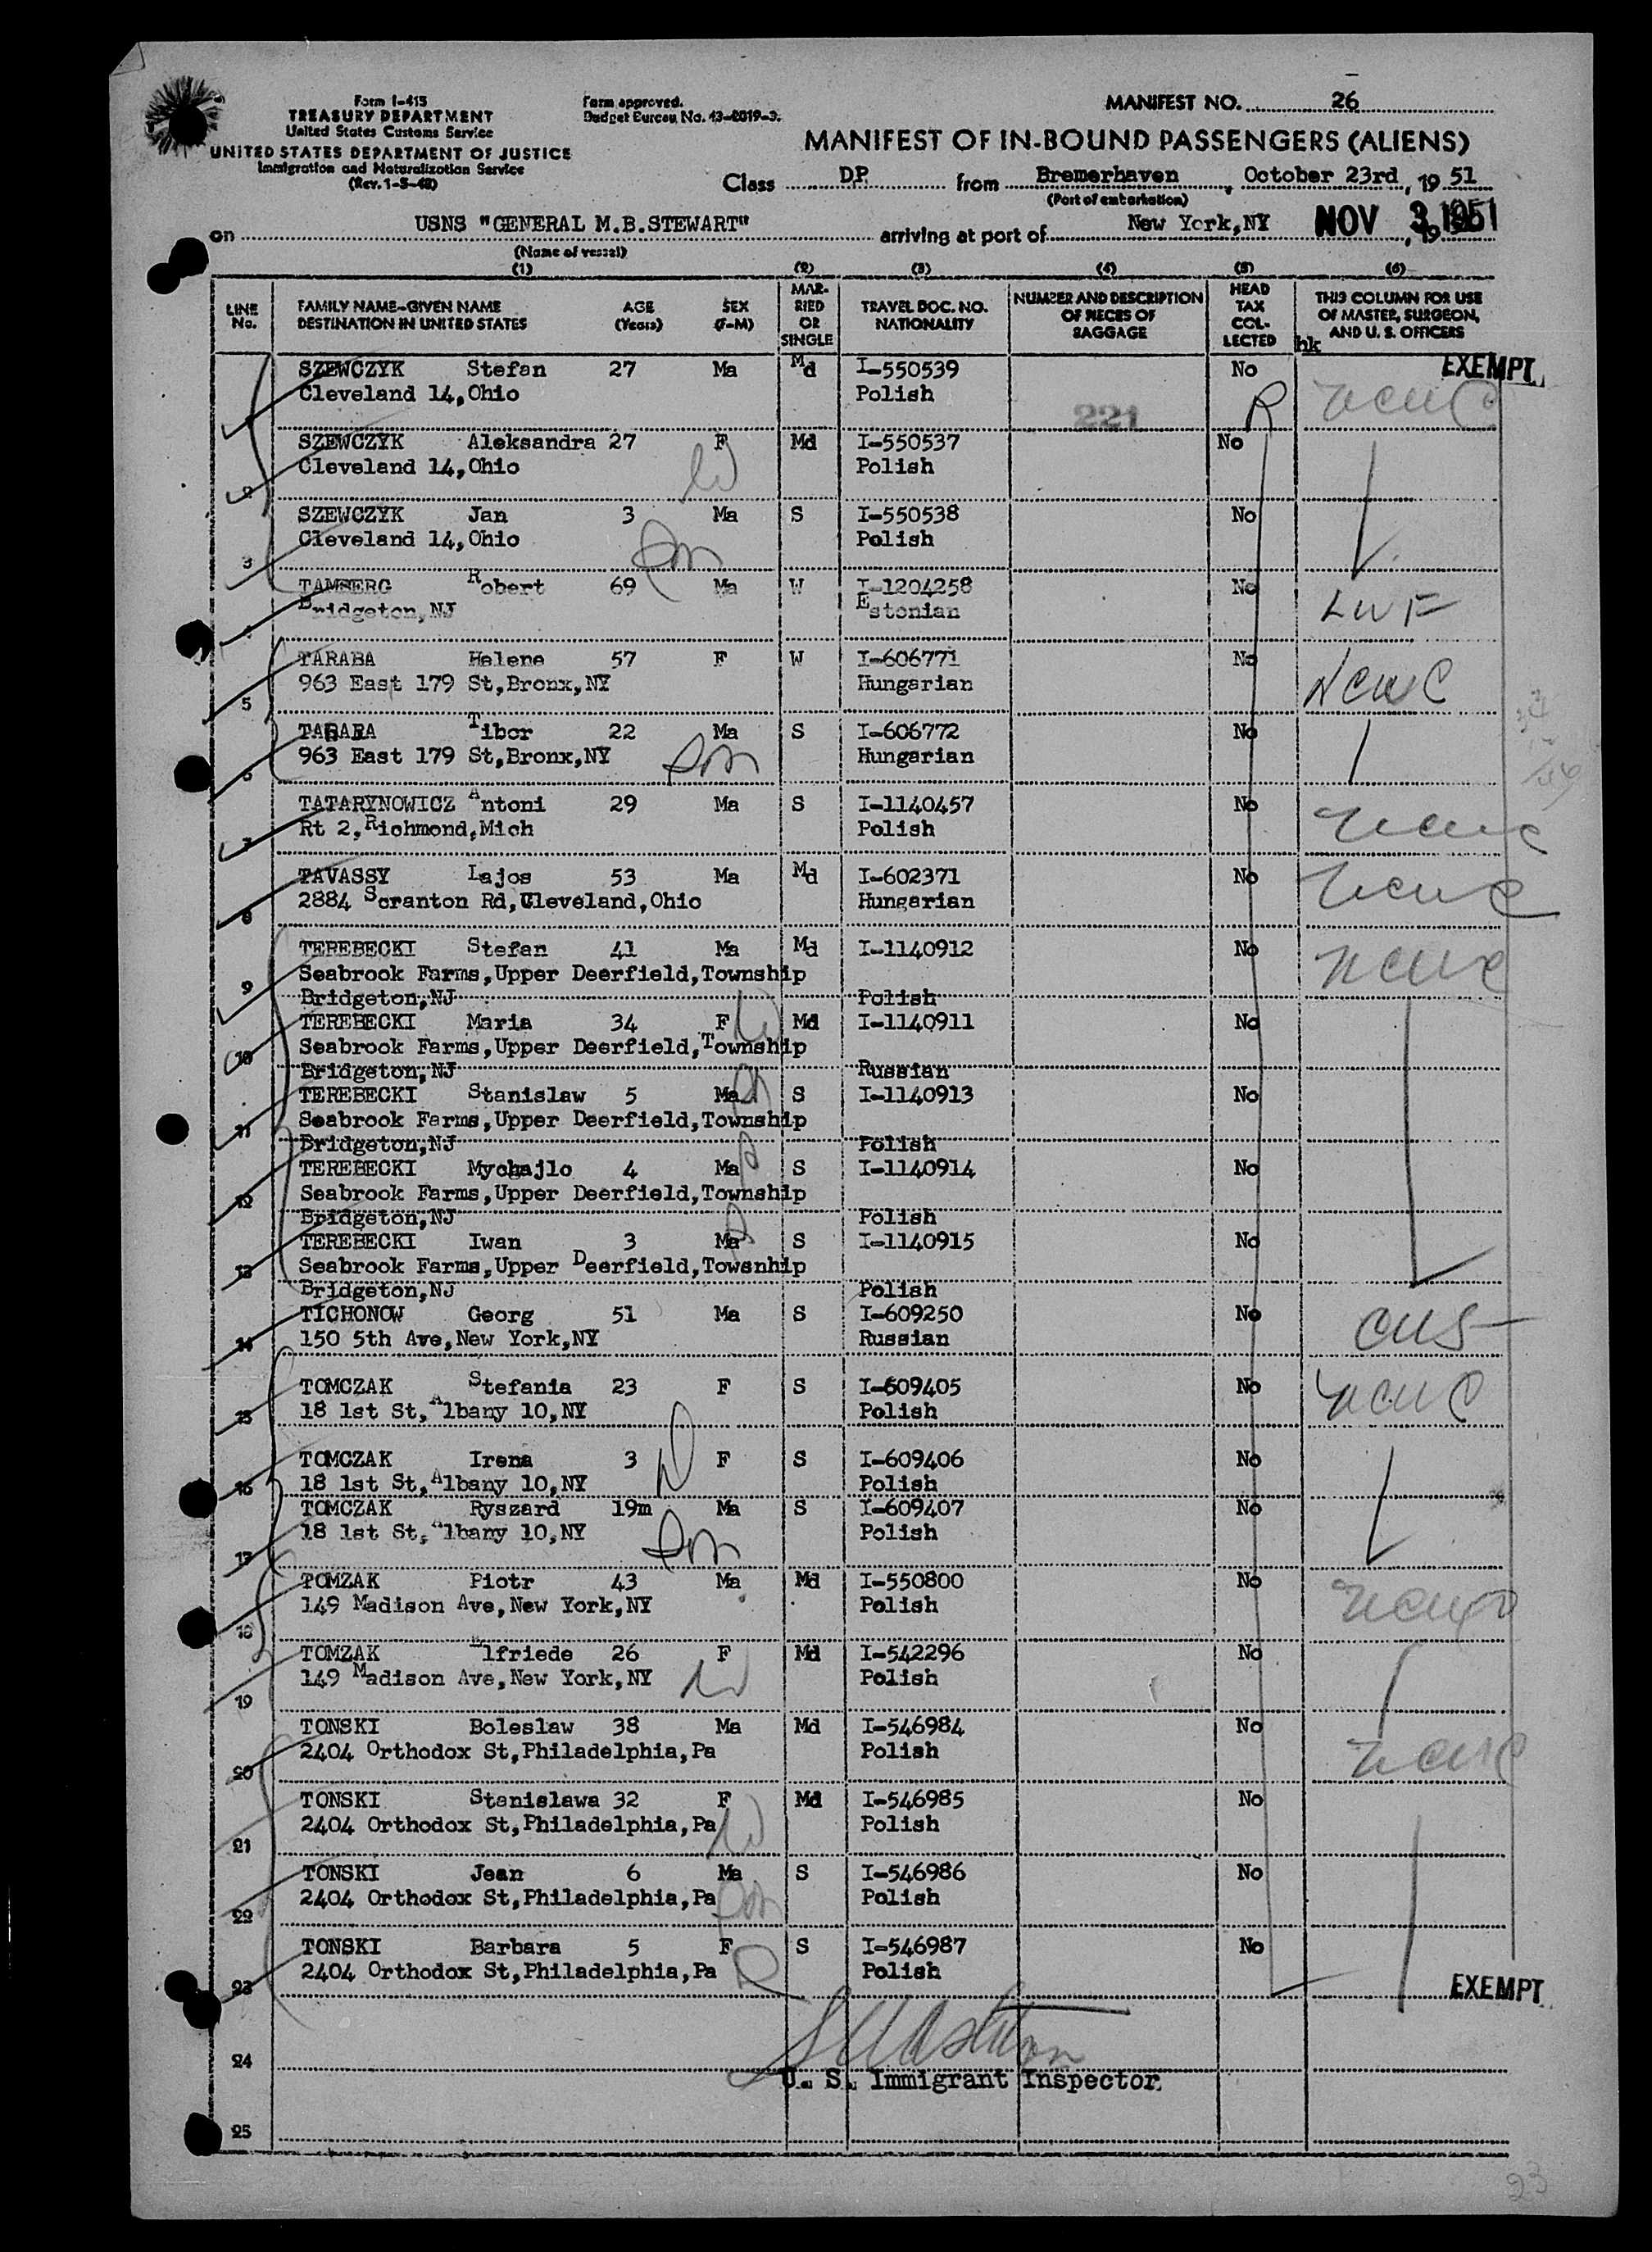 Form I-415
TREASURY DEPARTMENT
United States Customs Service
UNITED STATES DEPARTMENT OF JUSTICE
Immigration and Naturalization Service
(Rev. 1-5-48)
Form approved.
Budget Bureau No. 43-R019-3.
MANIFEST NO. 26
MANIFEST OF IN-BOUND PASSENGERS (ALIENS)
Class DP from Bremerhaven, October 23rd, 19 51
(Port of embarkation)
on USNS "GENERAL M.B.STEWART" arriving at port of New York,NY NOV 3 1951, 19
(Name of vessel)
(1) (2) (3) (4) (5) (6)
LINE No. FAMILY NAME-GIVEN NAME DESTINATION IN UNITED STATES AGE (Years) SEX (F-M) MARRIED OR SINGLE TRAVEL DOC. NO. NATIONALITY NUMBER AND DESCRIPTION OF PIECES OF BAGGAGE HEAD TAX COLLECTED THIS COLUMN FOR USE OF MASTER, SURGEON, AND U. S. OFFICERS
hk
EXEMPT
SZEWCZYK Stefan 27 Ma Md I-550539 No
Cleveland 14,Ohio Polish 221 R NCWC
SZEWCZYK Aleksandra 27 F Md I-550537 No
2 Cleveland 14,Ohio W Polish
SZEWCZYK Jan 3 Ma S I-550538 No
3 Cleveland 14,Ohio Son Polish
TAMBERG Robert 69 Ma W I-1204258 No LWF
Bridgeton,NJ Estonian
TARABA Helene 57 F W I-606771 No NCWC
5 963 East 179 St,Bronx,NY Hungarian
TARABA Tibor 22 Ma S I-606772 No
6 963 East 179 St,Bronx,NY Son Hungarian
TATARYNOWICZ Antoni 29 Ma S I-1140457 No NCWC
7 Rt 2,Richmond,Mich Polish
TAVASSY Lajos 53 Ma Md I-602371 No NCWC
8 2884 Scranton Rd,Cleveland,Ohio Hungarian
TEREBECKI Stefan 41 Ma Md I-1140912 No NCWC
9 Seabrook Farms,Upper Deerfield,Township
Bridgeton,NJ Polish
TEREBECKI Maria 34 F W Md I-1140911 No
10 Seabrook Farms,Upper Deerfield,Township
Bridgeton,NJ Russian
TEREBECKI Stanislaw 5 Ma S I-1140913 No
11 Seabrook Farms,Upper Deerfield,Township
Bridgeton,NJ Polish
TEREBECKI Mychajlo 4 Ma S I-1140914 No
12 Seabrook Farms,Upper Deerfield,Township
Bridgeton,NJ Polish
TEREBECKI Iwan 3 Ma S I-1140915 No
13 Seabrook Farms,Upper Deerfield,Towsnhip
Bridgeton,NJ Polish
TICHONOW Georg 51 Ma S I-609250 No CWS
14 150 5th Ave,New York,NY Russian
TOMCZAK Stefania 23 F S I-609405 No NCWC
15 18 1st St,Albany 10,NY Polish
TOMCZAK Irena 3 F S I-609406 No
16 18 1st St,Albany 10,NY D Polish
TOMCZAK Ryszard 19m Ma S I-609407 No
17 18 1st St,Albany 10,NY Son Polish
TOMZAK Piotr 43 Ma Md I-550800 No NCWC
18 149 Madison Ave,New York,NY Polish
TOMZAK Elfriede 26 F Md I-542296 No
19 149 Madison Ave,New York,NY W Polish
TONSKI Boleslaw 38 Ma Md I-546984 No NCWC
20 2404 Orthodox St,Philadelphia,Pa Polish
TONSKI Stanislawa 32 F Md I-546985 No
21 2404 Orthodox St,Philadelphia,Pa W Polish
TONSKI Jean 6 Ma S I-546986 No
22 2404 Orthodox St,Philadelphia,Pa Son Polish
TONSKI Barbara 5 F S I-546987 No
23 2404 Orthodox St,Philadelphia,Pa D Polish
EXEMPT
24
U. S. Immigrant Inspector
25
23